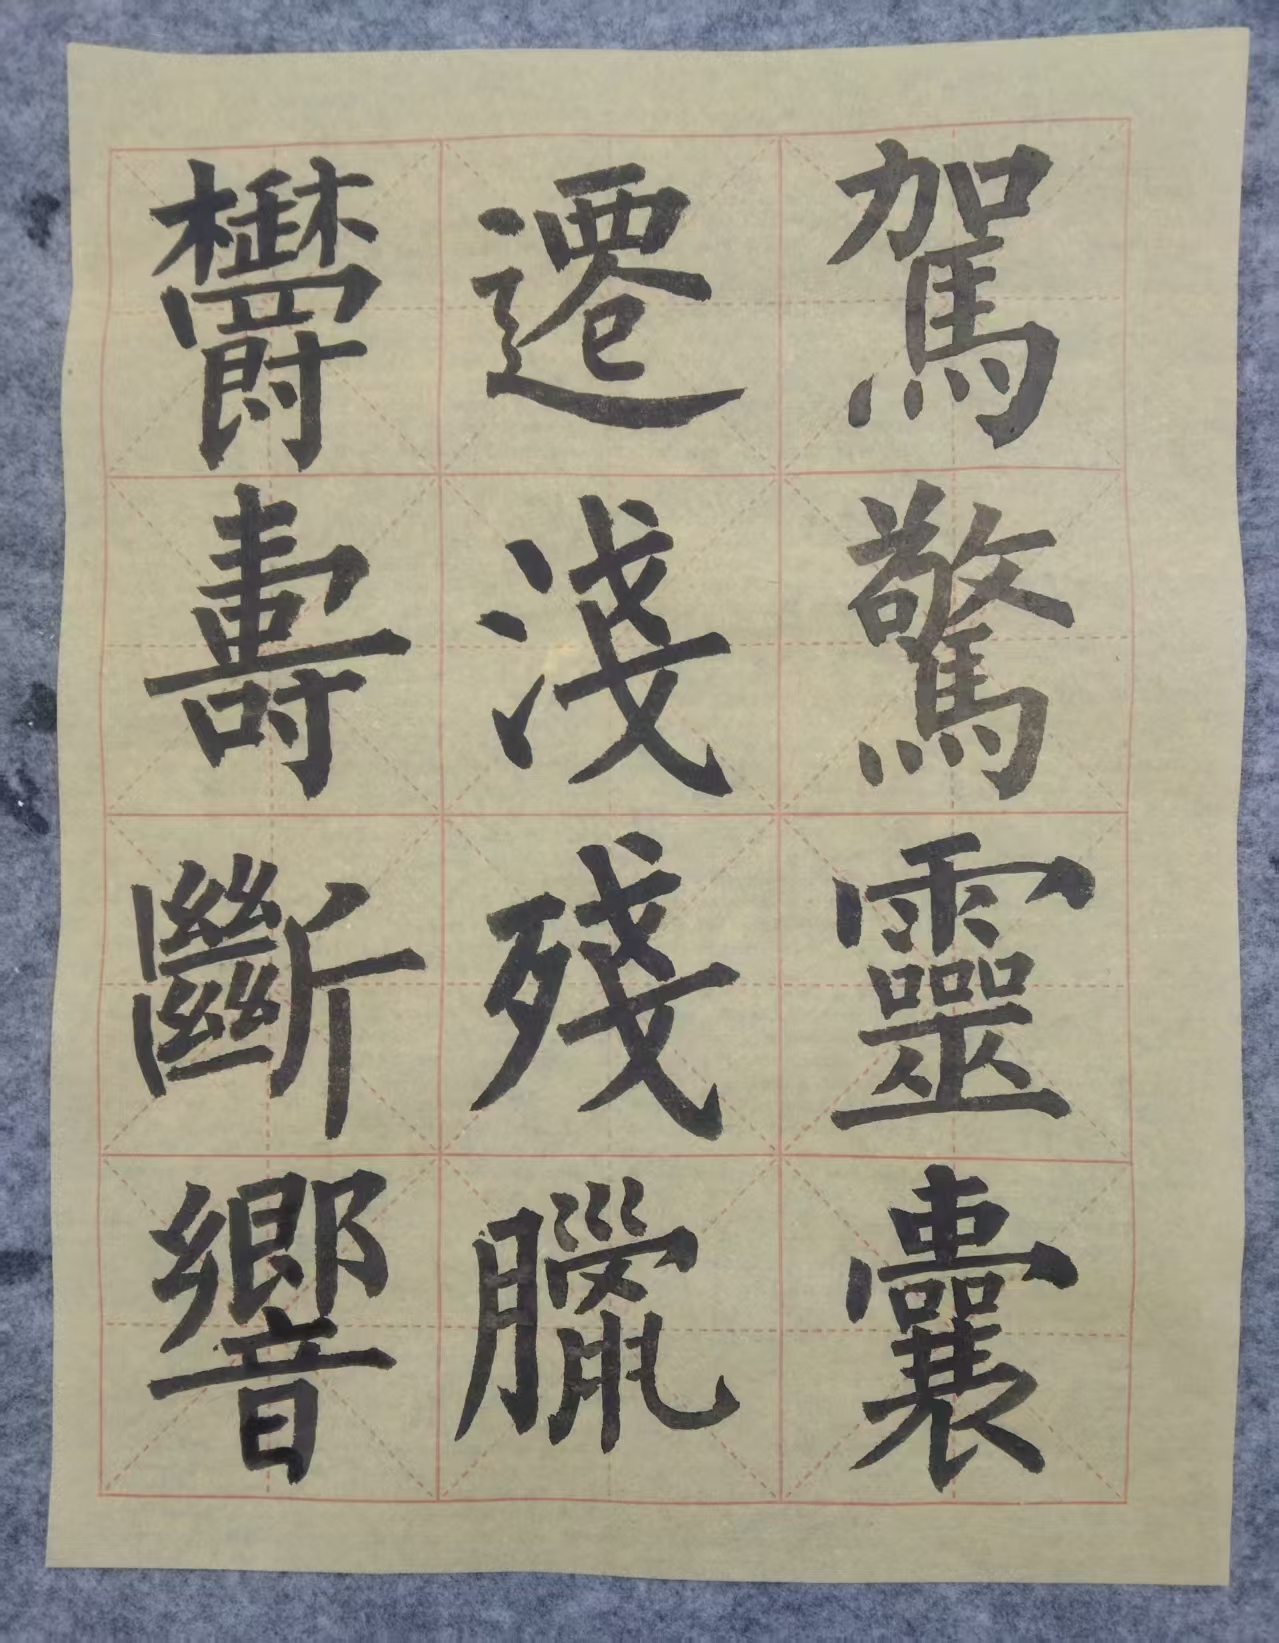 駕驚靈囊
遷淺殘臘
欝壽斷響